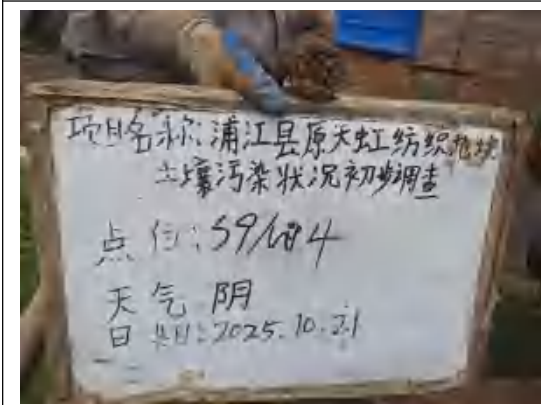 项目名称:浦江县原天虹纺织地块
土壤污染状况初步调查
点位:S9/W4
天气 阴
日期:2025.10.21